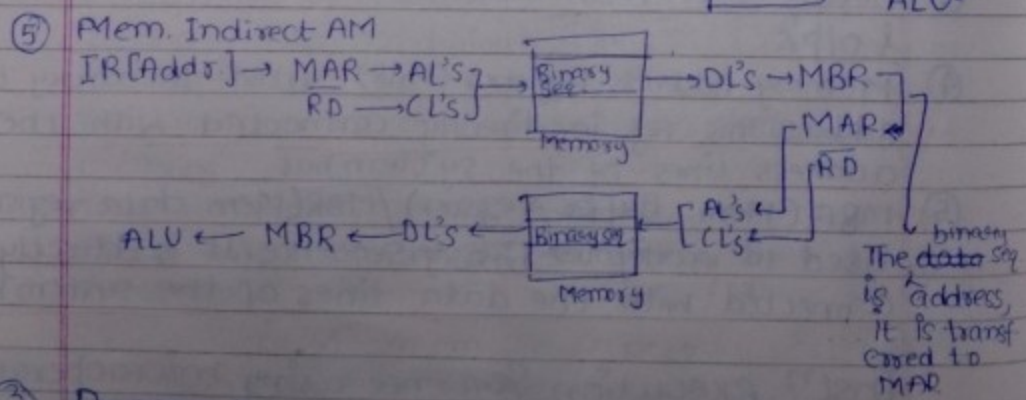 ALU
⑤ Mem. Indirect AM
IR[Addr] → MAR → AL's
R̅D̅ → CL's
Binary Seq.
Memory
→ DL's → MBR
MAR
R̅D̅
AL's
CL's
Binary seq
Memory
ALU ← MBR ← DL's ←
binary
The data seq
is address,
it is transf
erred to
MAR